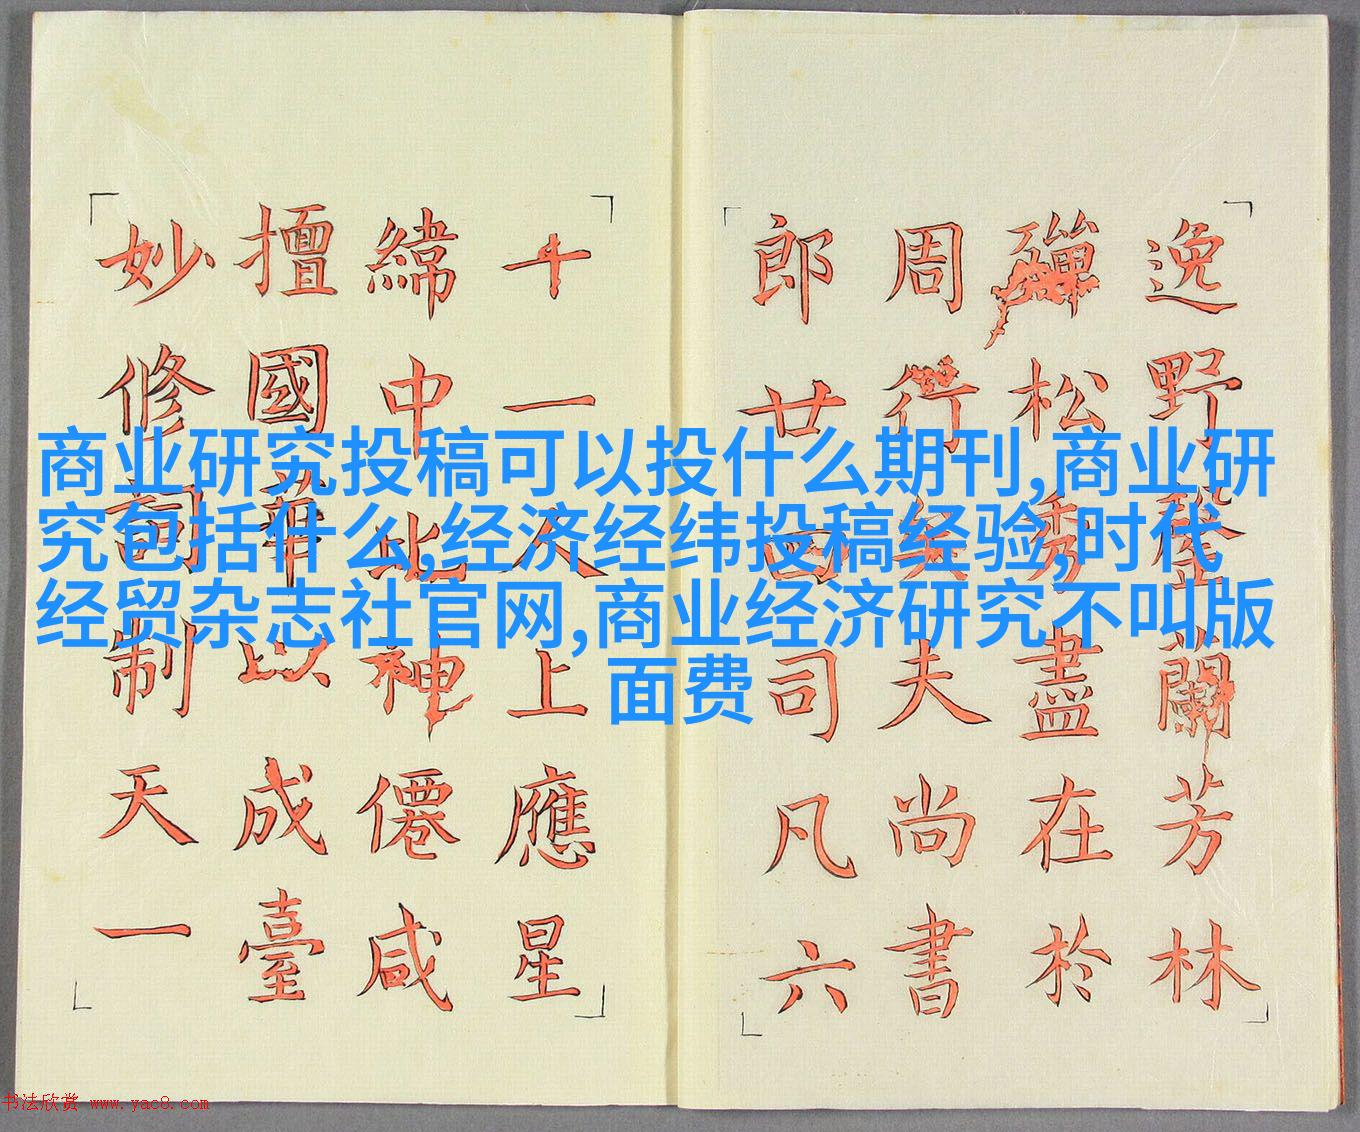 商业研究投稿可以投什么期刊,商业研
究包括什么,经济经纬投稿经验,时代
经贸杂志社官网,商业经济研究不叫版
面费
逸野罄蘭芳林
殫松秀盡在於
周行矣夫尚書
郎廿四司凡六
十一人上應星
緯中比神僊咸
擅國華以成臺
妙修詞制天一
书法欣赏 www.yac8.com